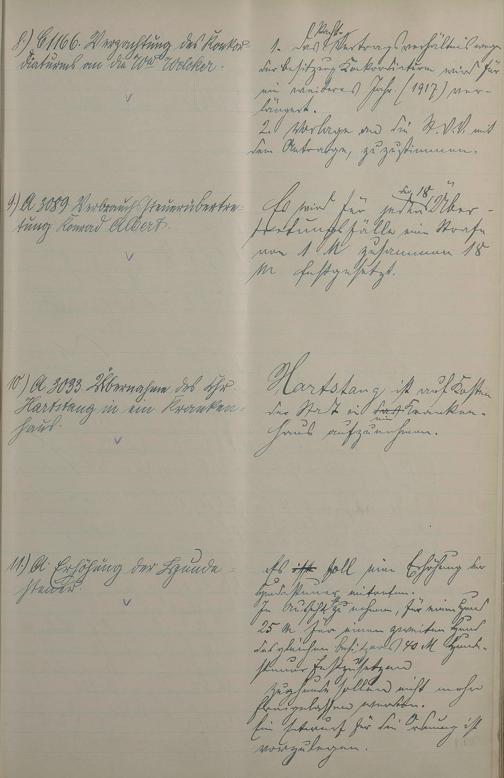 8.) C 1166. Verpachtung des Konkor-
diaturms an die Wwe Wolcker.
Pacht-
1. Das Vertragsverhältnis wegen
der Besitzung Konkordiaturm wird für
ein weiteres Jahr (1917) ver-
längert.
2. Vorlage an die St.V.V. mit
dem Antrage, zuzustimmen.
9.) A 3089 Verbrauchssteuerübertre-
tung Konrad Albert.
die 18
Es wird für jeden Über-
tretungsfälle eine Strafe
von 1 M zusammen 18
M. festgesetzt.
10.) A 3033 Übernahme des Chr
Hartstang in ein Kranken-
haus.
Hartstang ist auf Kosten
der Stadt in das Kranken-
ein
haus aufzunehmen.
11.) A. Erhöhung der Hunde-
steuer.
Es ist soll eine Erhöhung der
Hundesteuer eintreten.
In Aussicht zu nehmen, für einen Hund
25 M für einen zweiten Hund
desgleichen Besitzers 40 M Hunde-
steuer festzusetzen
Zughunde sollen nicht mehr
freigelassen werden.
Ein Entwurf für die Ordnung ist
vorzulegen.